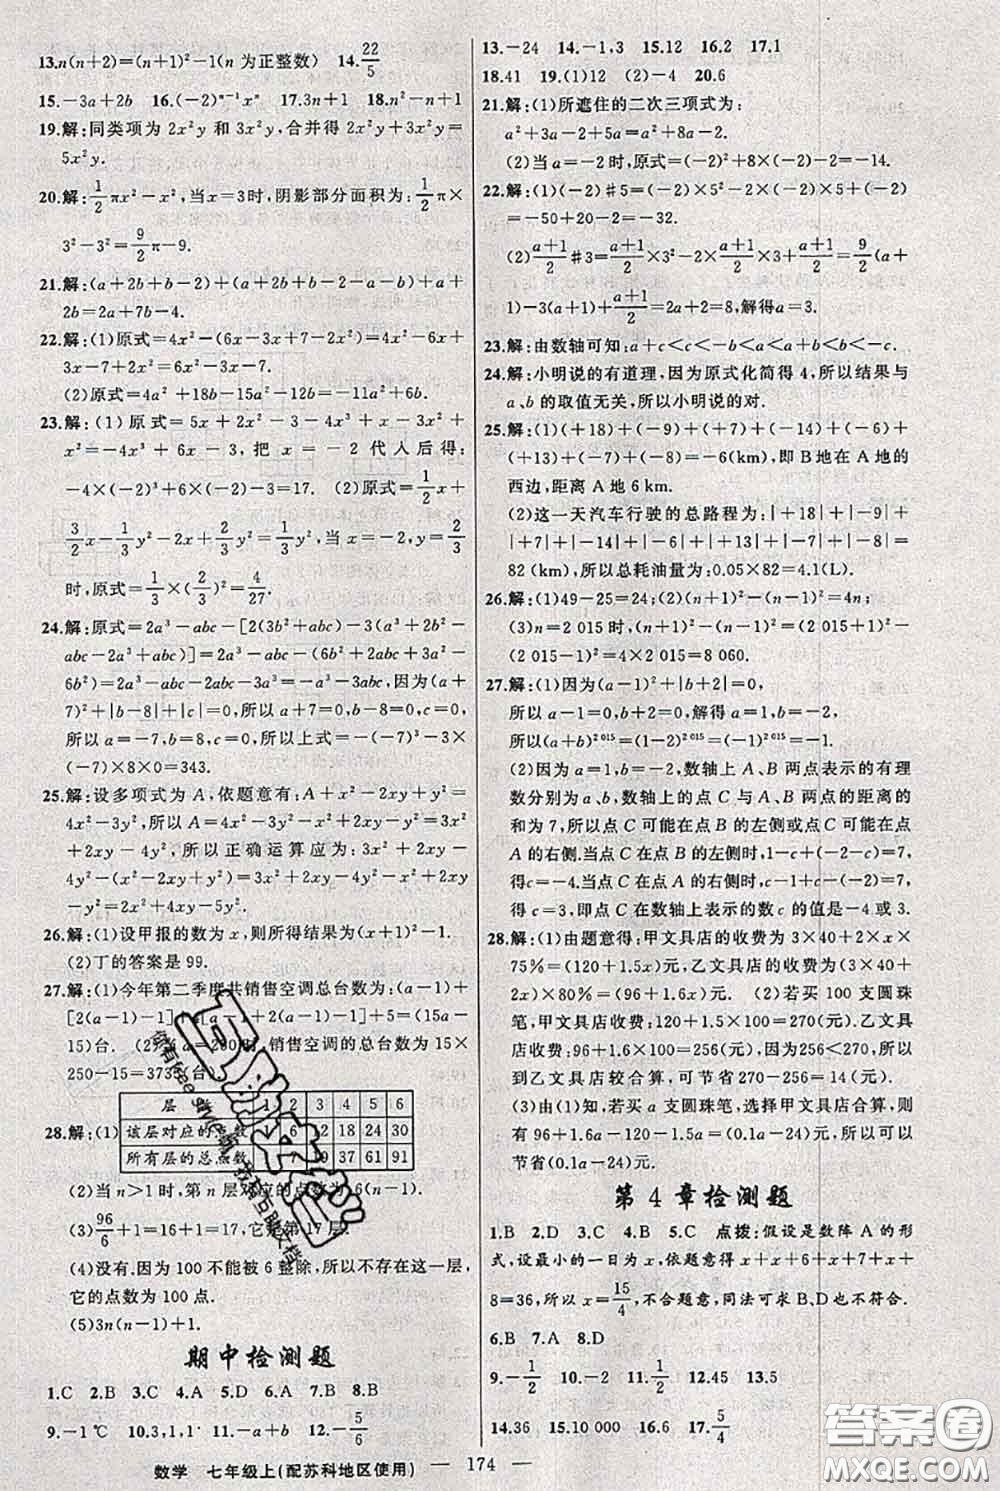 13.n(n+2)=(n+1)²-1(n 为正整数)  14.22/5
15.-3a+2b  16.(-2)ⁿ⁻¹xⁿ  17.3n+1  18.n²-n+1
19.解:同类项为 2x²y 和 3x²y,合并得 2x²y+3x²y=
5x²y.
20.解:1/2πx²-x²,当 x=3时,阴影部分面积为:1/2π×
3²-3²=9/2π-9.
21.解:(a+2b+b-2)+(a+2b+b-2-a-b)+a+
2b=2a+7b-4.
22.解:(1)原式=4x²-(6x-3-7x+7)=4x²-6x+
3x-7+2x²=6x²-3x-7.
(2)原式=4a²+18b-15a²-12b=-11a²+6b.
23.解:(1)原式=5x+2x²-3-4x³+x+
x²=-4x³+6x-3,把 x=-2 代人后得:
-4×(-2)³+6×(-2)-3=17. (2)原式=1/2x+
3/2x-1/3y²-2x+2/3y²=1/3y²,当 x=-2,y=2/3
时,原式=1/3×(2/3)²=4/27.
24.解:原式=2a³-abc-[2(3b²+abc)-3(a³+2b²
-abc-2a³+abc)]=2a³-abc-(6b²+2abc+3a³
-6b²)=2a³-abc-2abc-3a³=-a³-3abc,因为(a+
7)²+|b-8|+|c|=0,所以 a+7=0,b-8=0,c=0,
所以 a=-7,b=8,c=0,所以上式=-(-7)³-3×
(-7)×8×0=343.
25.解:设多项式为 A,依题意有:A+x²-2xy+y²=
4x²-3y²,所以 A=4x²-3y²-x²+2xy-y²=3x²+
2xy-4y²,所以正确运算应为:3x²+2xy-
4y²-(x²-2xy+y²)=3x²+2xy-4y²-x²+2xy
-y²=2x²+4xy-5y².
26.解:(1)设甲报的数为 x,则所得结果为(x+1)²-1.
(2)丁的答案是 99.
27.解:(1)今年第二季度共销售空调总台数为:(a-1)+
[2(a-1)-1]+{4[(a-1)+2(a-1)-1]+5}=(15a-
15)台. (2)当a=250时,销售空调的总台数为 15×
250-15=3735(台).
28.解:(1)
层 数 1 2 3 4 5 6
该层对应的点数 1 6 12 18 24 30
所有层的总点数 1 7 19 37 61 91
(2)当 n>1 时,第 n 层对应的点数为 6(n-1).
(3)96/6+1=16+1=17,它是第 17 层.
(4)没有.因为 100 不能被 6 整除,所以没有这一层,
它的点数为 100 点.
(5)3n(n-1)+1.
期中检测题
1.C 2.B 3.A 4.A 5.D 6.A 7.B 8.B
9.-1℃ 10.3,1,1 11.-a+b 12.-5/6
13.-24 14.-1,3 15.12 16.2 17.1
18.41 19.(1)12 (2)-4 20.6
21.解:(1)所遮住的二次三项式为:
a²+3a-2+5a=a²+8a-2.
(2)当 a=-2 时,原式=(-2)²+8×(-2)-2=-14.
22.解:(1)(-2)♯5=(-2)×5²-2×(-2)×5+(-2)
=-50+20-2=-32.
(2)a+1/2♯3=a+1/2×3²-2×a+1/2×3+a+1/2=9/2(a
+1)-3(a+1)+a+1/2=2a+2=8,解得a=3.
23.解:由数轴可知:a+c<c<-b<a<a+b<b<-c.
24.解:小明说的有道理,因为原式化简得 4,所以结果与
a、b 的取值无关,所以小明说的对.
25.解:(1)(+18)+(-9)+(+7)+(-14)+(-6)+
(+13)+(-6)+(-8)=-6(km),即 B地在 A 地的
西边,距离 A 地 6 km.
(2)这一天汽车行驶的总路程为:|+18|+|-9|+
|+7|+|-14|+|-6|+|+13|+|-6|+|-8|=
82 (km),所以总耗油量为:0.05×82=4.1(L).
26.解:(1)49-25=24;(2)(n+1)²-(n-1)²=4n;
(3)n=2 015时,(n+1)²-(n-1)²=(2 015+1)²-(2
015-1)²=4×2 015=8 060.
27.解:(1)因为(a-1)²+|b+2|=0,
所以 a-1=0,b+2=0,解得 a=1,b=-2,
所以(a+b)²⁰¹⁵=(1-2)²⁰¹⁵=(-1)²⁰¹⁵=-1.
(2)因为 a=1,b=-2,数轴上 A、B 两点表示的有理
数分别为 a、b,数轴上的点 C 与 A、B 两点的距离的
和为 7,所以点 C 可能在点 B 的左侧或点 C 可能在点
A 的右侧.当点 C 在点 B 的左侧时,1-c+(-2-c)=7,
得c=-4.当点 C 在点 A 的右侧时,c-1+c-(-2)=7,
得 c=3,即点 C 在数轴上表示的数 c 的值是-4 或 3.
28.解:(1)由题意得:甲文具店的收费为 3×40+2x×
75%=(120+1.5x)元,乙文具店的收费为(3×40+
2x)×80%=(96+1.6x)元. (2)若买 100 支圆珠
笔,甲文具店收费为:120+1.5×100=270(元).乙文具
店收费为:96+1.6×100=256(元),因为256<270,所以
到乙文具店比较合算,可节省270-256=14(元).
(3)由(1)知,若买 a 支圆珠笔,选择甲文具店合算,则
有 96+1.6a-(120+1.5a)=(0.1a-24)元,所以可以
节省(0.1a-24)元.
第 4 章检测题
1.B 2.D 3.C 4.B 5.C 点拨:假设是数阵 A 的形
式,设最小的一日为 x,依题意得 x+x+6+x+7+x+
8=36,所以 x=15/4,不合题意,同法可求 B、D也不符合.
6.B 7.A 8.D
9.-1/2 10.-2 11.-1/2 12.45 13.5
14.36 15.10 000 16.6 17.5/4
数学 七年级上(配苏科地区使用) — 174 —
答案圈
MXQE.COM